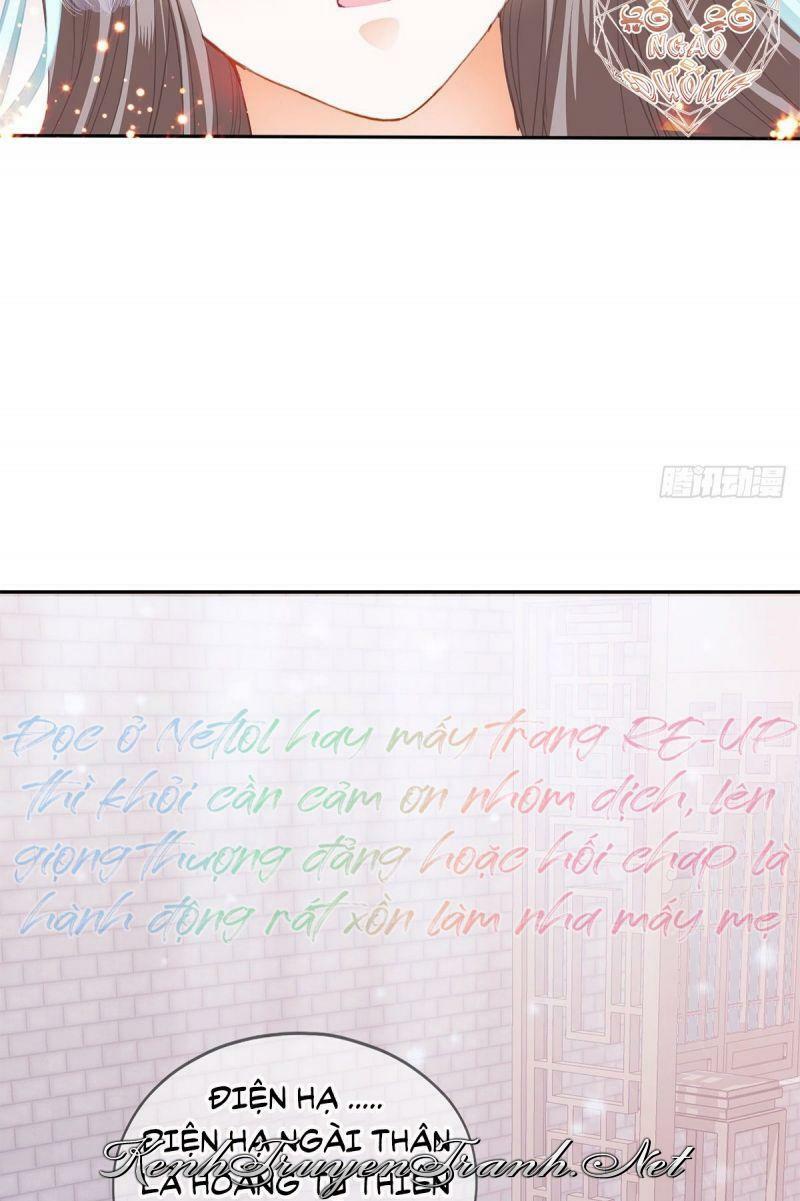 HỐ HỐ
NGÀO
ĐƯỜNG
腾讯动漫
Đọc ở Netlol hay mấy trang RE-UP
thì khỏi cần cảm ơn nhóm dịch, lên
giọng thượng đẳng hoặc hối chap là
hành động rất xồn làm nha mấy mẹ
ĐIỆN HẠ .....
ĐIỆN HẠ NGÀI THÂN
LÀ HOÀNG TỬ THIÊN
KenhTruyenTranh.Net